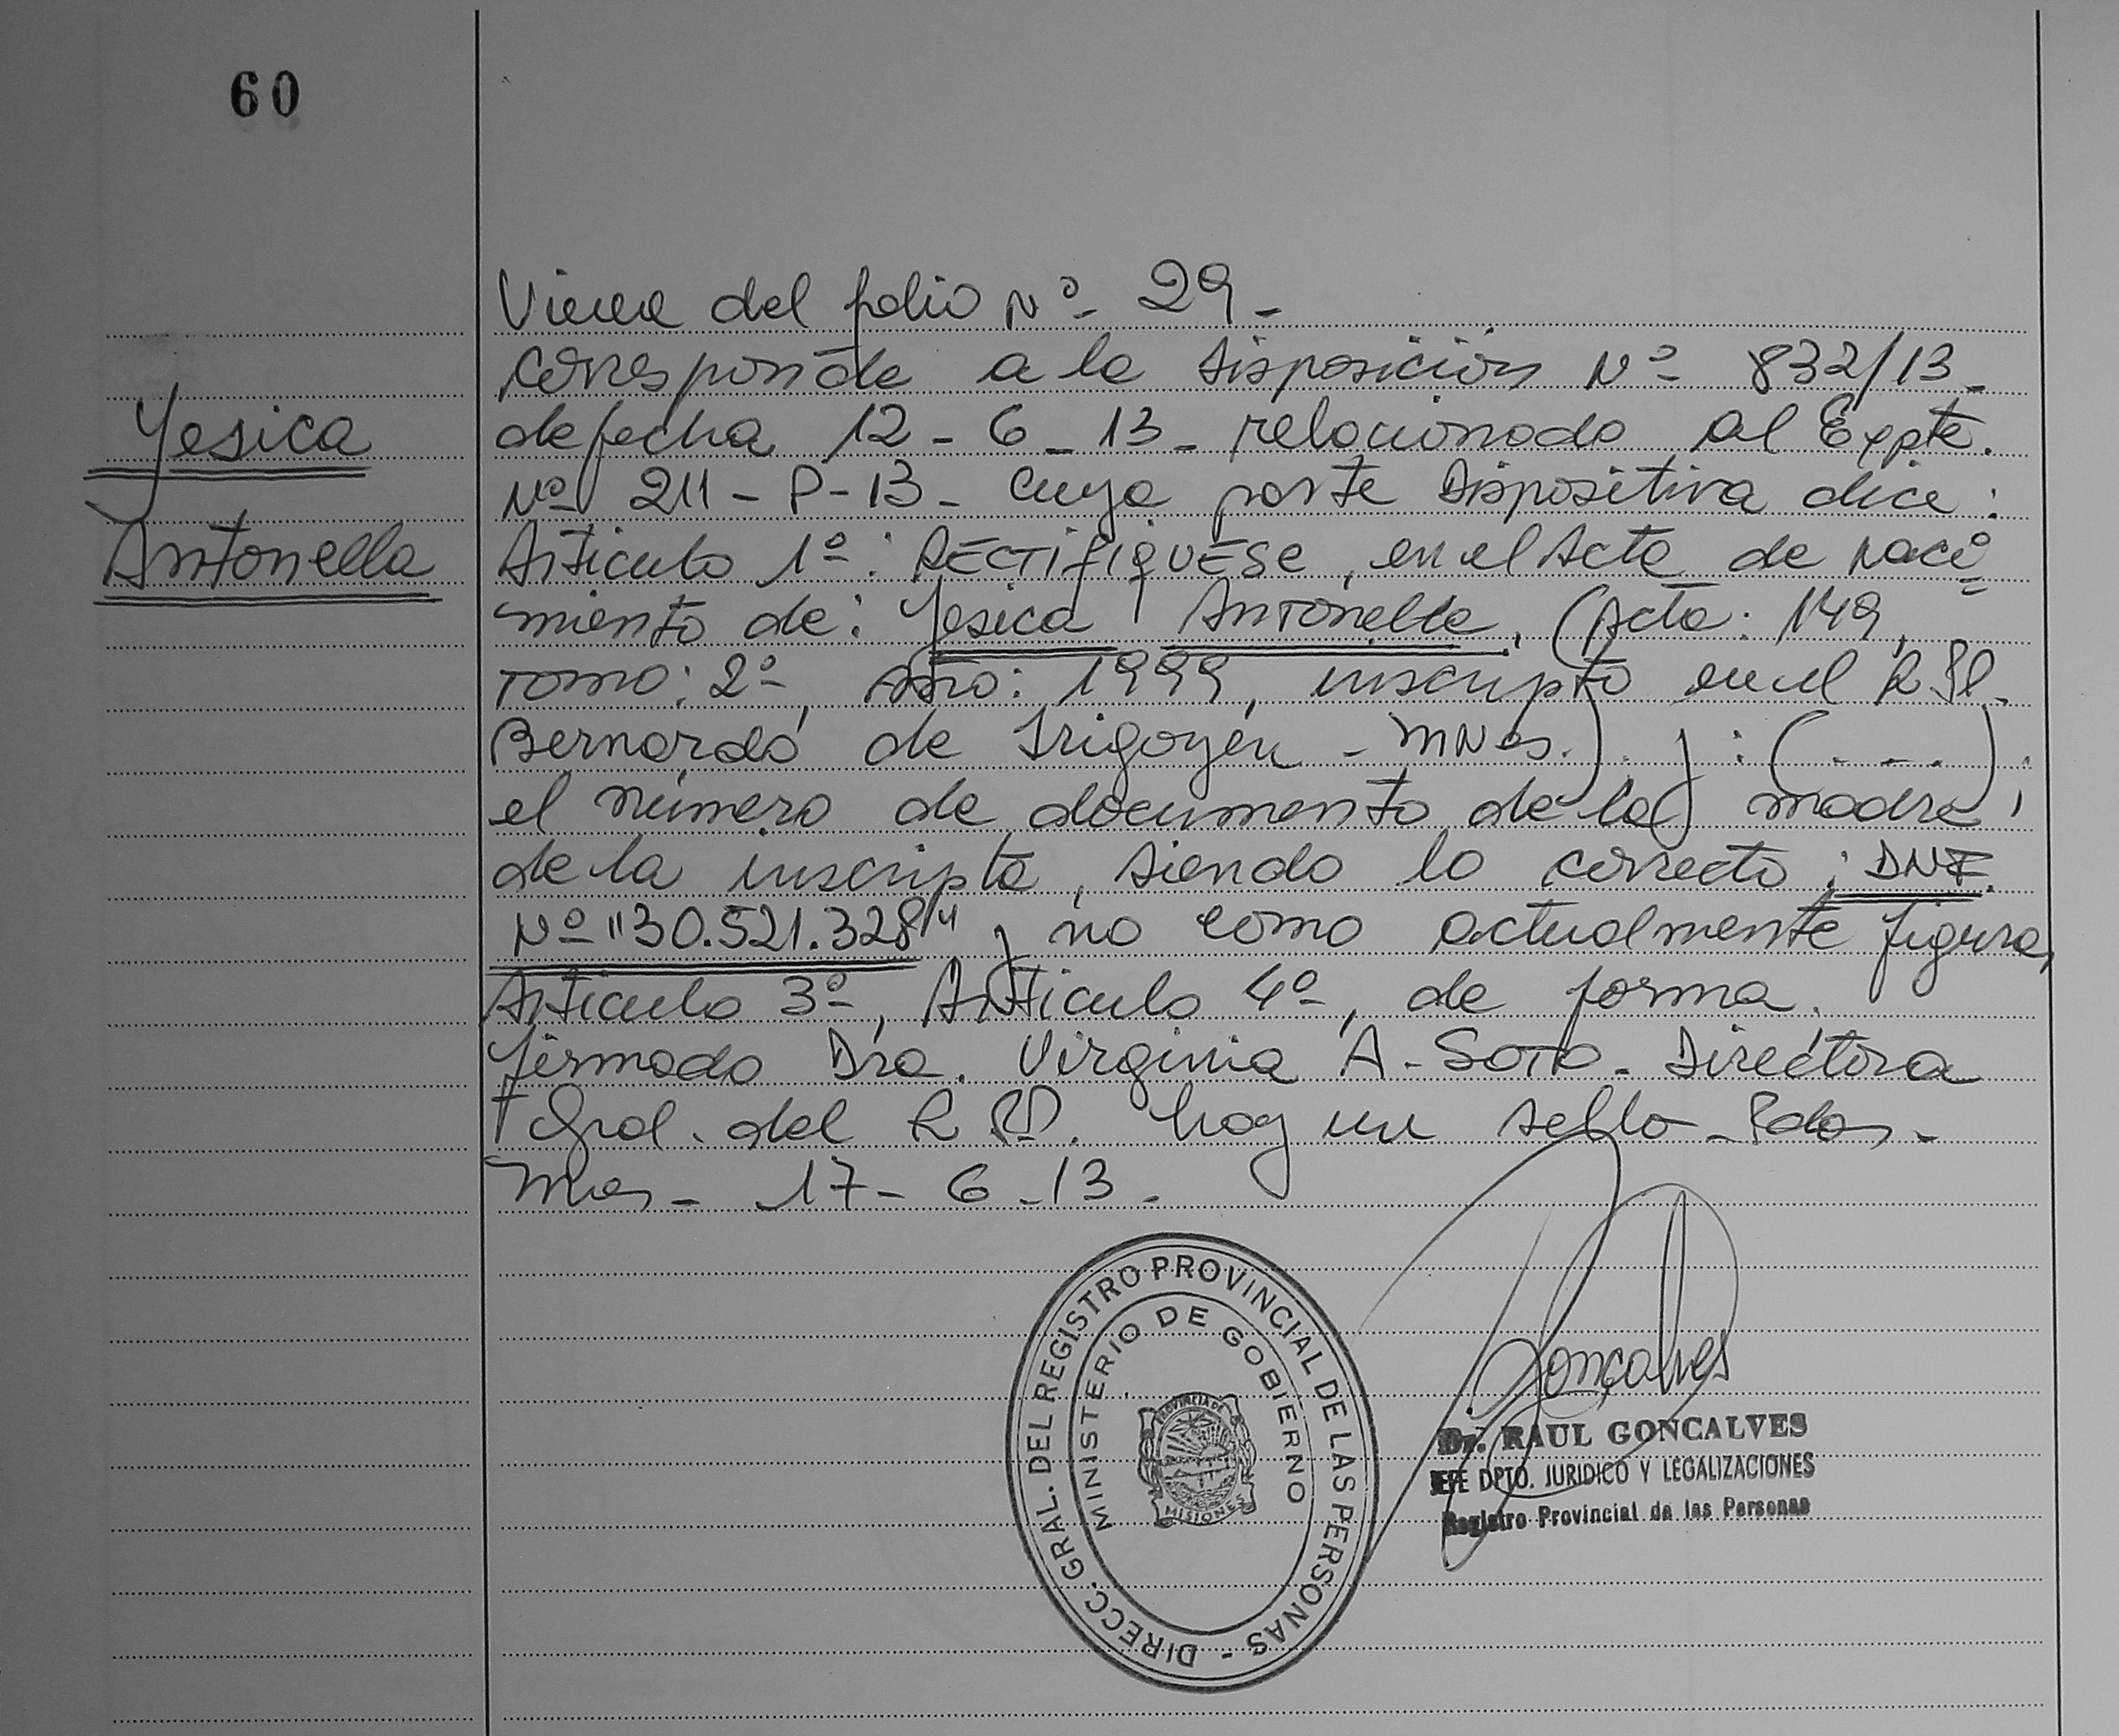 60
Yesica
Antonella
Viene del folio Nº- 29-
corresponde a la disposición Nº 832/13-
de fecha 12-6-13- relacionado al Expte.
Nº 211-P-13- cuya parte dispositiva dice:
Artículo 1º: RECTIFIQUESE, en el Acta de naci-
miento de: Yesica Antonella, (Acta: 149,
Tomo: 2º, Año: 1999, inscripto en el
Bernardo de Irigoyen - Mnes.). y: (....).
el número de documento de la madre,
de la inscripta, siendo lo correcto: DNI.
Nº "30.521.328" y no como actualmente figura,
Artículo 3º, Artículo 4º, de forma.
firmado Dra. Virginia A. Soto. Directora
Gral. del R.P.P. hay un sello - Pdas-
Mnes- 17-6-13.
DIRECC. GRAL. DEL REGISTRO PROVINCIAL DE LAS PERSONAS -
MINISTERIO DE GOBIERNO
PROVINCIA DE
MISIONES
Goncalves
Dr. RAUL GONCALVES
JEFE DPTO. JURIDICO Y LEGALIZACIONES
Registro Provincial de las Personas